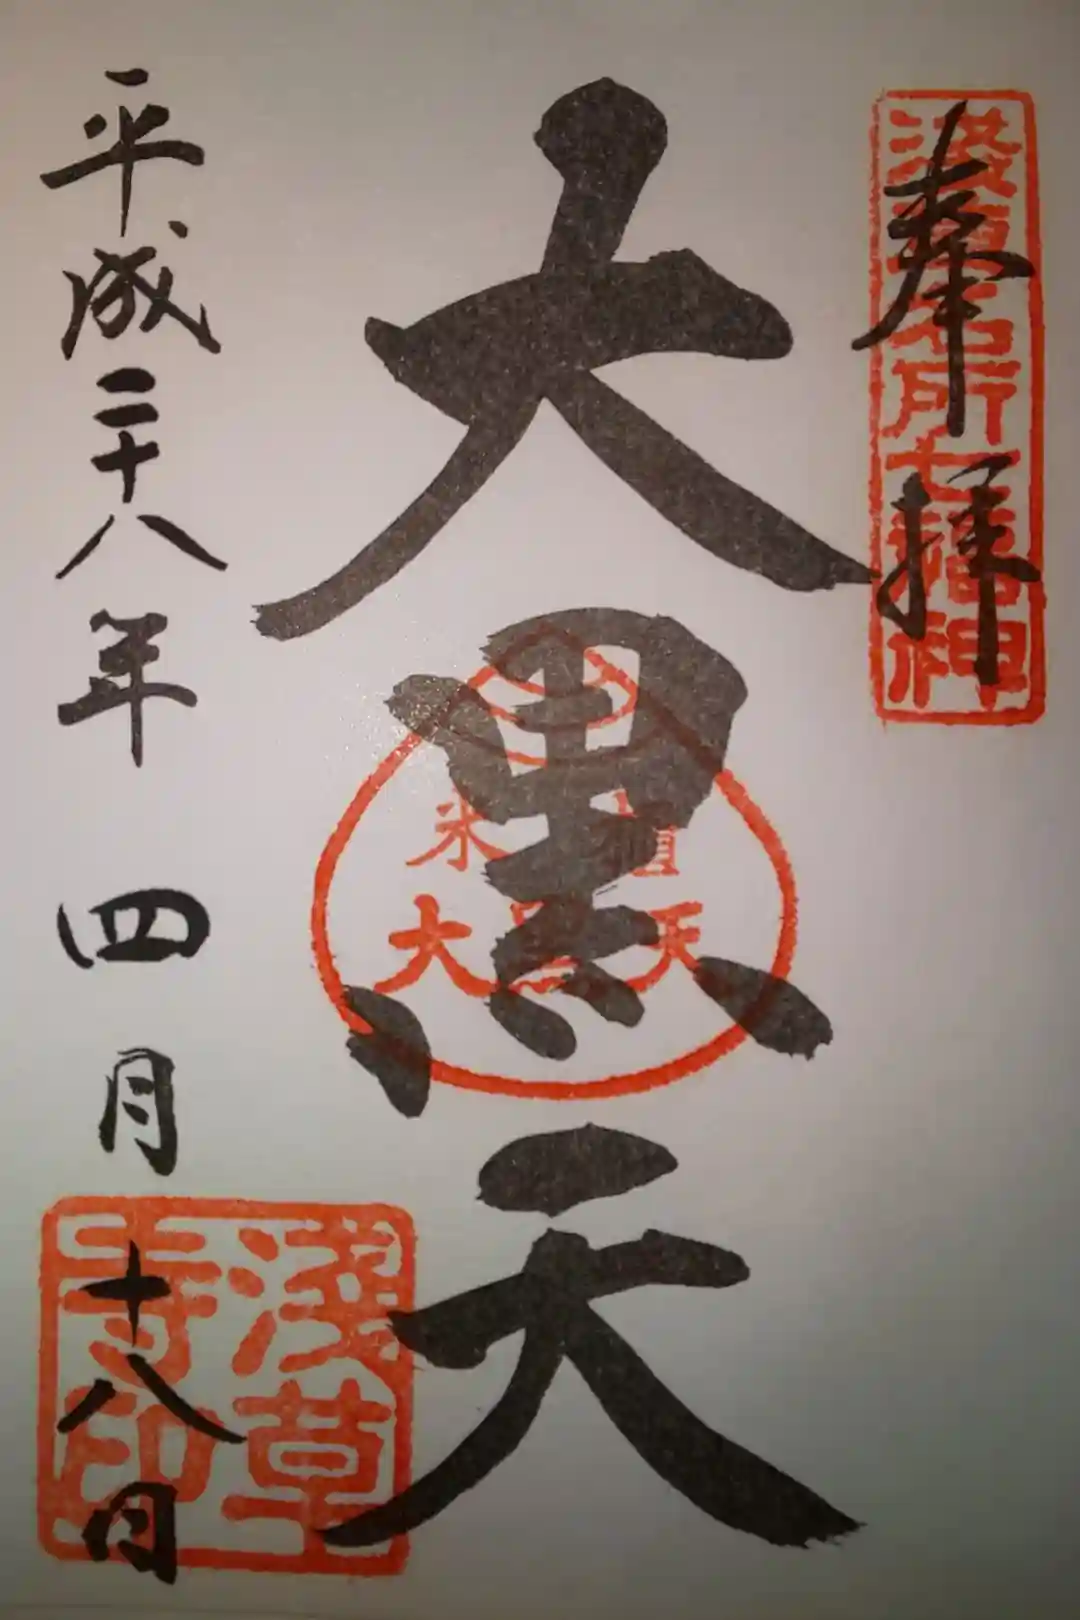 奉拝
浅草名所七福神
大黒天
米
大黒天
平成二十八年四月十八日
浅草
寺印